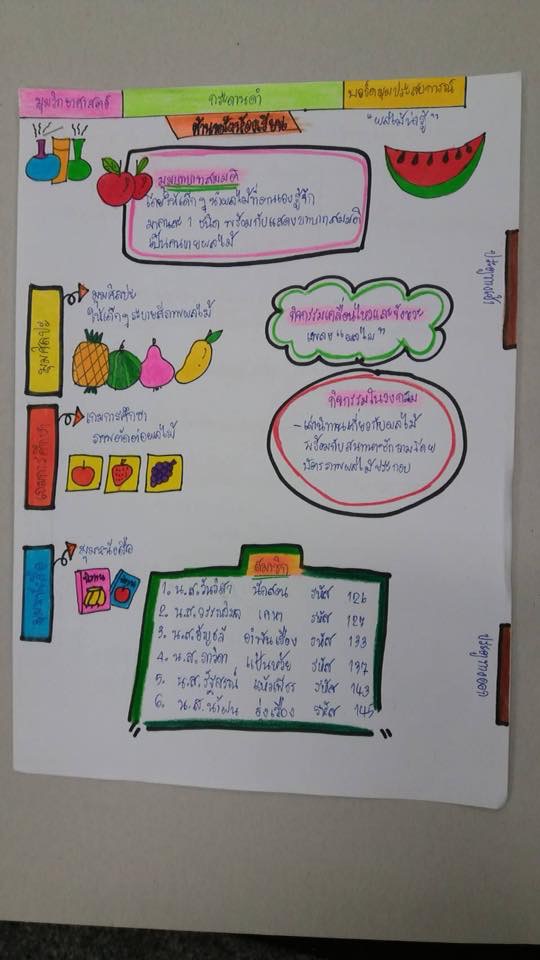 มุมวิทยาศาสตร์
กระดานดำ
บอร์ดมุมประสบการณ์
ด้านหน้าห้องเรียน
"ผลไม้น่ารู้"
มุมบทบาทสมมติ
โดยให้เด็กๆ นำผลไม้ที่ตนเองรู้จัก
มาคนละ 1 ชนิด พร้อมกับแสดงบทบาทสมมติ
เป็นคนขายผลไม้
ประตูทางเข้า
มุมศิลปะ
มุมศิลปะ
ให้เด็กๆ ระบายสีภาพผลไม้
กิจกรรมเคลื่อนไหวและจังหวะ
เพลง "ผลไม้"
เกมการศึกษา
เกมการศึกษา
ภาพตัดต่อผลไม้
กิจกรรมในวงกลม
- เล่านิทานเกี่ยวกับผลไม้
พร้อมกับสนทนาซักถามโดย
บัตรภาพผลไม้ประกอบ
มุมหนังสือ
มุมหนังสือ
นิทาน
สมาชิก
1. น.ส.วันวิสา นักสอน รหัส 126
2. น.ส. เคหา รหัส
3. น.ส.ธัญชลี อำพันเรือง รหัส 133
4. น.ส.ภาวิดา แป้นห้วย รหัส 137
5. น.ส. รหัส 143
6. น.ส.น้ำฝน รุ่งเรือง รหัส 145
ประตูทางออก